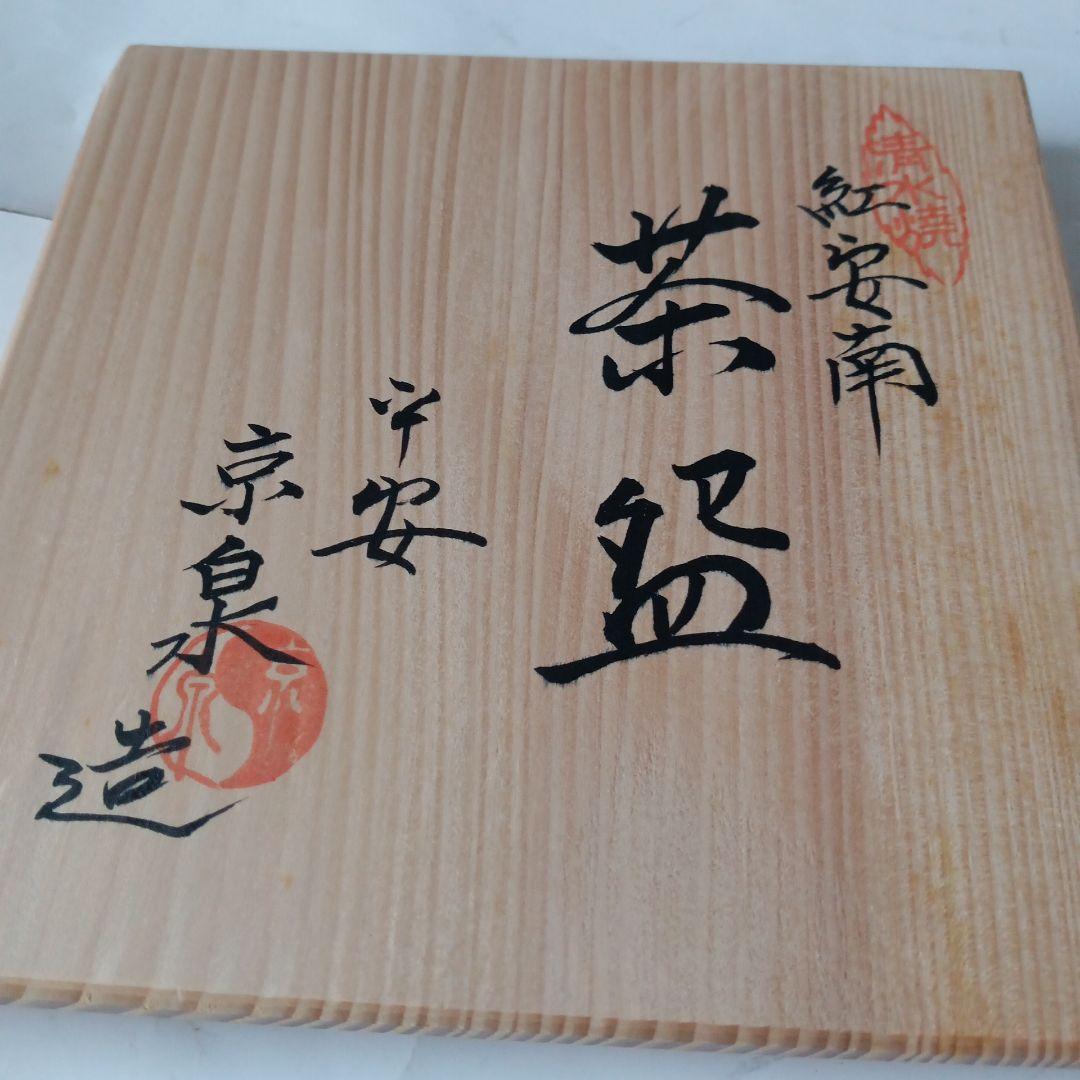 清水焼
紅安南
茶盌
平安
京泉造
京泉